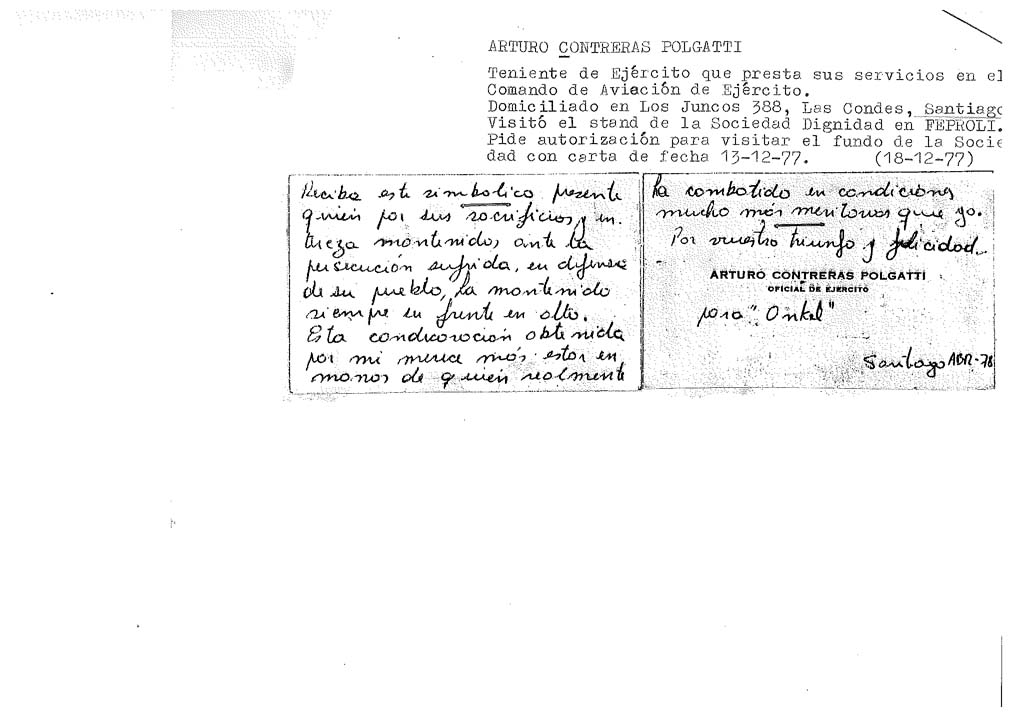 ARTURO CONTRERAS POLGATTI
Teniente de Ejército que presta sus servicios en el
Comando de Aviación de Ejército.
Domiciliado en Los Juncos 388, Las Condes, Santiago
Visitó el stand de la Sociedad Dignidad en FEPROLI.
Pide autorización para visitar el fundo de la Socie
dad con carta de fecha 13-12-77. (18-12-77)
Reciba este simbolico presente
quien por sus sacrificios y en
tereza mantenidos ante la
persecución sufrida, en defensa
de su pueblo, ha mantenido
siempre su frente en alto.
Esta condicoración obtenida
por mi merece más estar en
manos de quien realmente
ha combatido en condiciones
mucho más meritorias que yo.
Por vuestro triunfo y felicidad
ARTURO CONTRERAS POLGATTI
OFICIAL DE EJERCITO
para "Onkel"
Santiago ABR-78